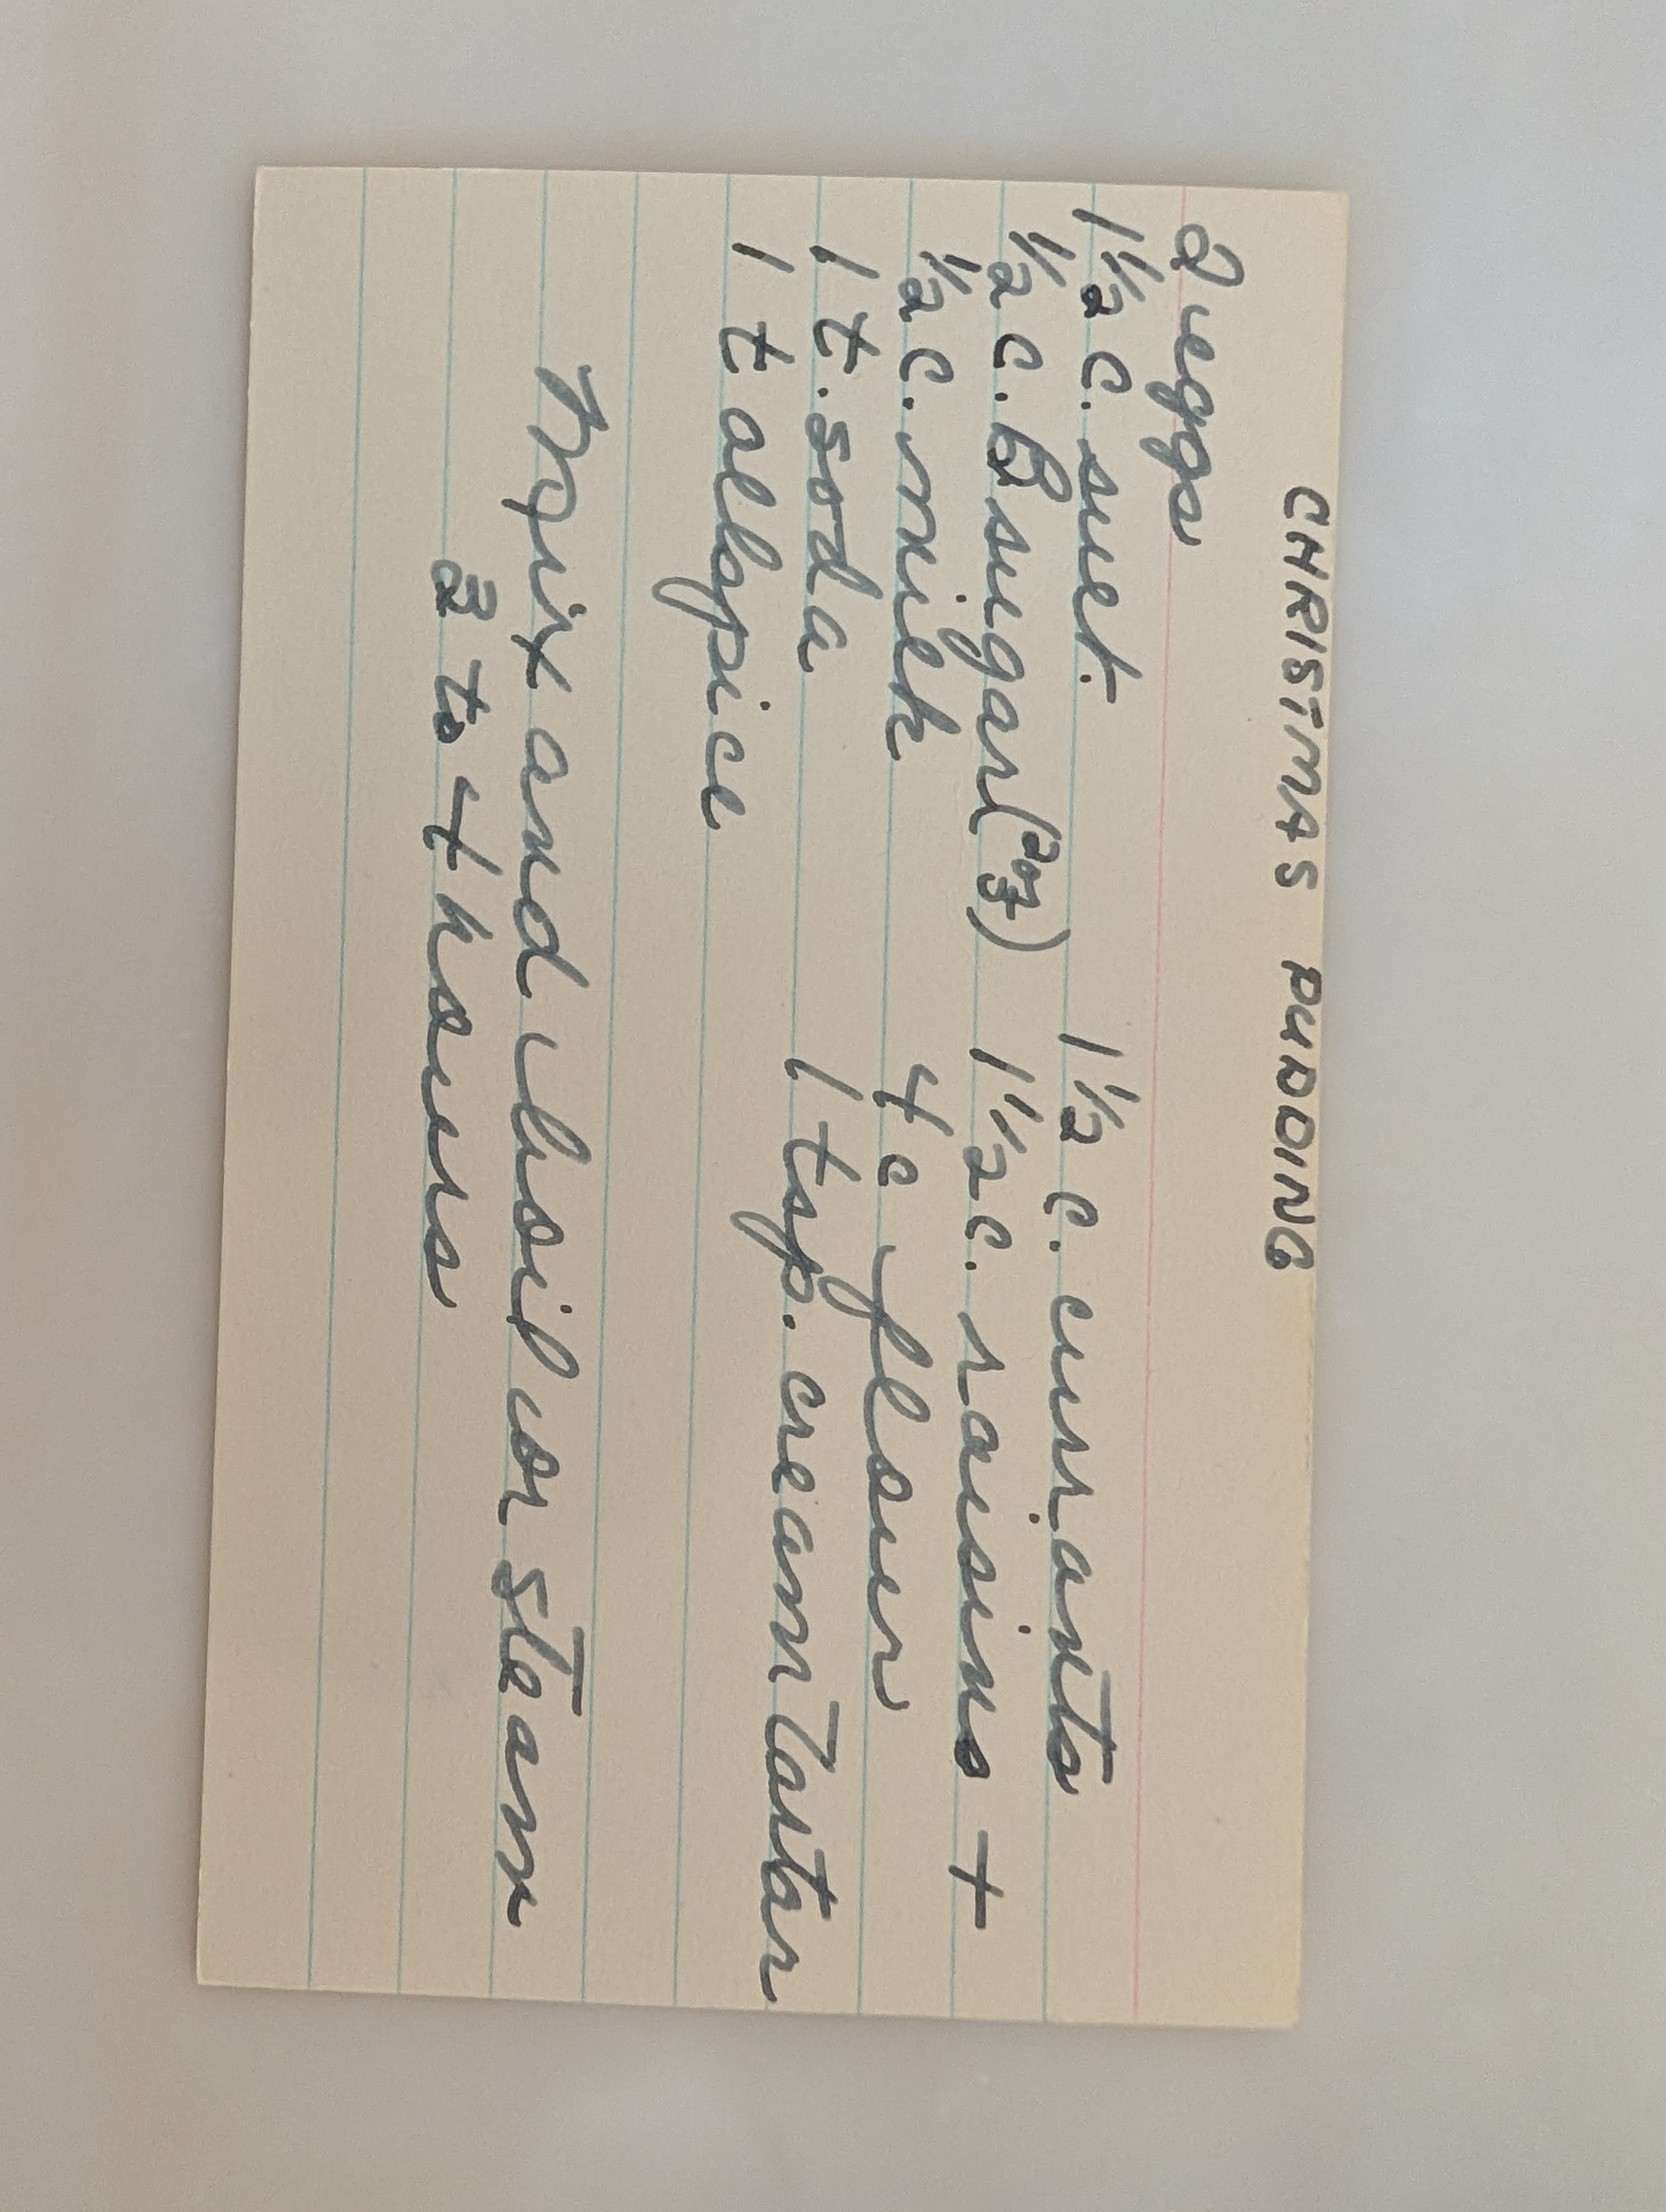 CHRISTMAS PUDDING
2 eggs
1½ c. suet. 1½ c. currants
½ c. B sugar (2oz) 1½ c. raisins +
½ c. milk 4 c flour
1 t. soda 1 tsp. cream Tartar
1 t allspice
Mix and boil or steam
3 to 4 hours